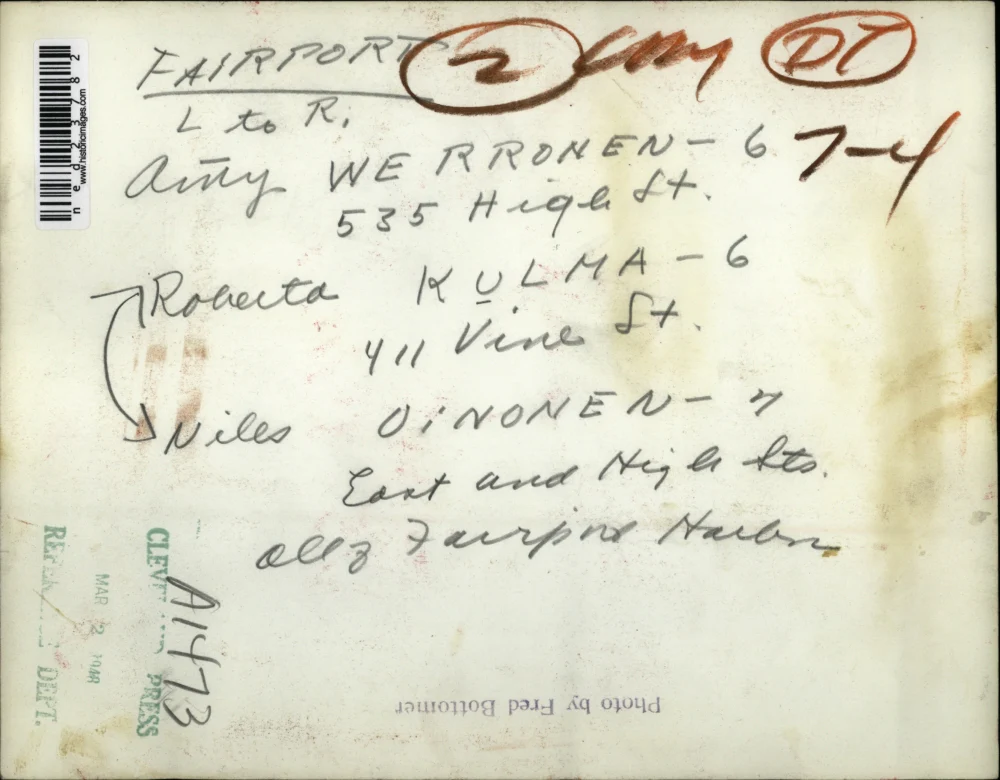 FAIRPORT 2 DT
L to R.
Amy WERRONEN - 6 7-4
535 High St.
Roberta KULMA - 6
411 Vine St.
Niles OiNONEN - 7
East and High Sts.
All of Fairport Harbor
A1473
CLEVELAND PRESS
MAR 2 1948
REFERENCE DEPT.
Photo by Fred Bottomer
www.historicimages.com
ned23782